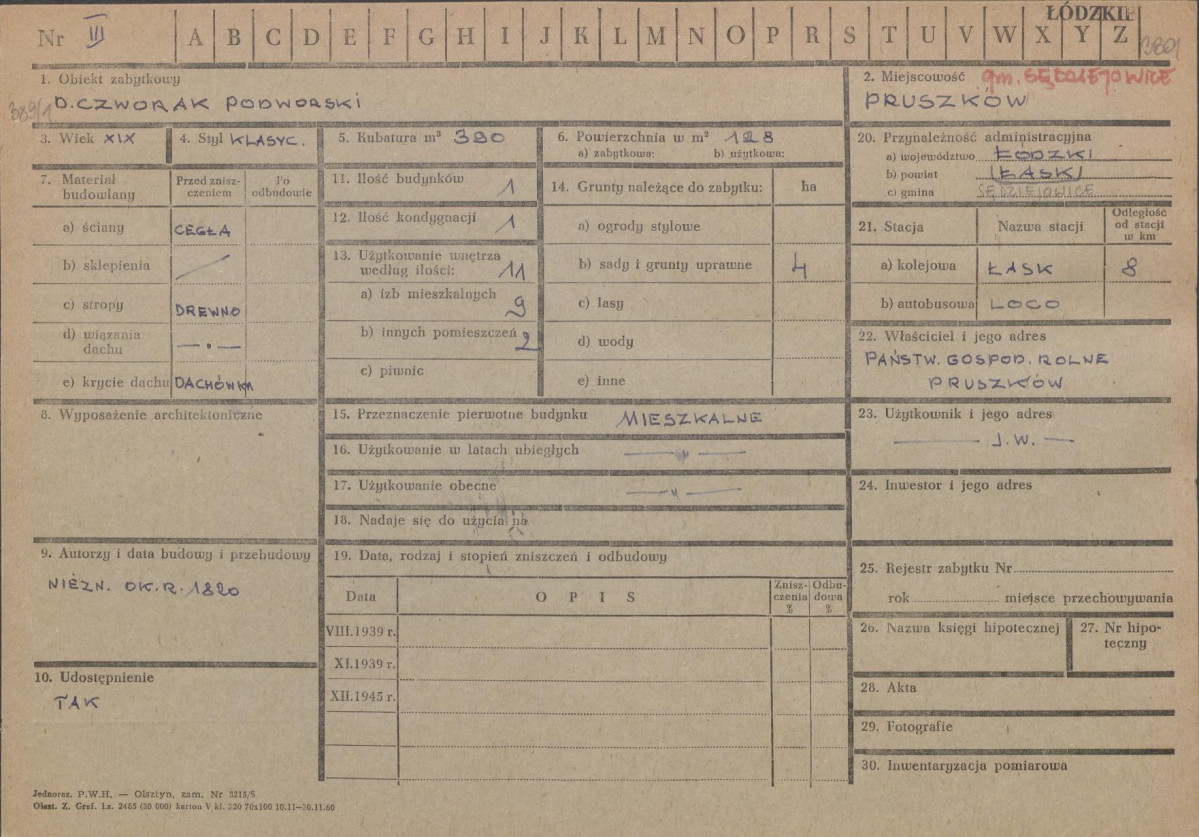 ŁÓDZKIE
Nr III A B C D E F G H I J K L M N O P R S T U V W X Y Z
1. Obiekt zabytkowy
D. CZWORAK PODWORSKI
389/1
2. Miejscowość gm. SĘDZIEJOWICE
PRUSZKÓW
3. Wiek XIX
4. Styl KLASYC.
5. Kubatura m³ 390
6. Powierzchnia w m² 128
a) zabytkowa: b) użytkowa:
7. Materiał budowlany
Przed znisz-
czeniem
Po
odbudowie
a) ściany CEGŁA
b) sklepienia
c) stropy DREWNO
d) wiązania
dachu — " —
e) krycie dachu DACHÓWKA
8. Wyposażenie architektoniczne
9. Autorzy i data budowy i przebudowy
NIEZN. OK. R. 1820
10. Udostępnienie
TAK
11. Ilość budynków 1
12. Ilość kondygnacji 1
13. Użytkowanie wnętrza
według ilości: 11
a) izb mieszkalnych 9
b) innych pomieszczeń 2
c) piwnic
14. Grunty należące do zabytku: ha
a) ogrody stylowe
b) sady i grunty uprawne 4
c) lasy
d) wody
e) inne
15. Przeznaczenie pierwotne budynku MIESZKALNE
16. Użytkowanie w latach ubiegłych — " —
17. Użytkowanie obecne — " —
18. Nadaje się do użycia na
19. Data, rodzaj i stopień zniszczeń i odbudowy
Data OPIS
Znisz-
czenia
%
Odbu-
dowa
%
VIII.1939 r.
XI.1939 r.
XII.1945 r.
20. Przynależność administracyjna
a) województwo ŁÓDZKI
b) powiat ŁASKI
c) gmina SĘDZIEJOWICE
21. Stacja Nazwa stacji
Odległość
od stacji
w km
a) kolejowa ŁASK 8
b) autobusowa LOCO
22. Właściciel i jego adres
PAŃSTW. GOSPOD. ROLNE
PRUSZKÓW
23. Użytkownik i jego adres
— J.W. —
24. Inwestor i jego adres
25. Rejestr zabytku Nr
rok miejsce przechowywania
26. Nazwa księgi hipotecznej
27. Nr hipo-
teczny
28. Akta
29. Fotografie
30. Inwentaryzacja pomiarowa
Jednoraz. P.W.H. — Olsztyn, zam. Nr 3215/S
Olszt. Z. Graf. Lz. 2465 (30 000) karton V kl. 220 70x100 10.11—30.11.60